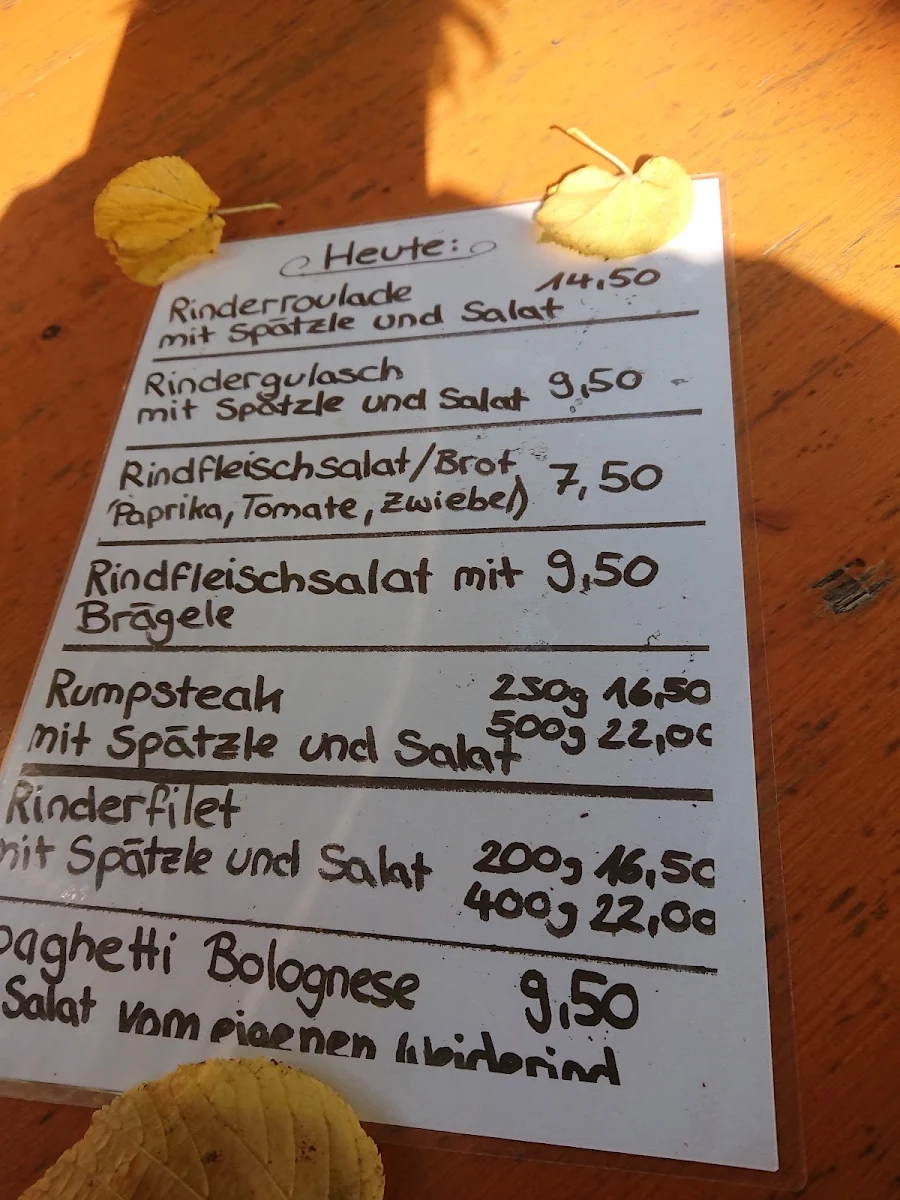 Heute:
Rinderroulade 14.50
mit Spätzle und Salat
Rindergulasch
mit Spätzle und Salat 9,50
Rindfleischsalat/Brot 7,50
(Paprika, Tomate, Zwiebel)
Rindfleischsalat mit 9,50
Brägele
Rumpsteak 250g 16,50
mit Spätzle und Salat 500g 22,00
Rinderfilet
mit Spätzle und Salat 200g 16,50
400g 22,00
paghetti Bolognese 9,50
Salat vom eigenen Weiderind